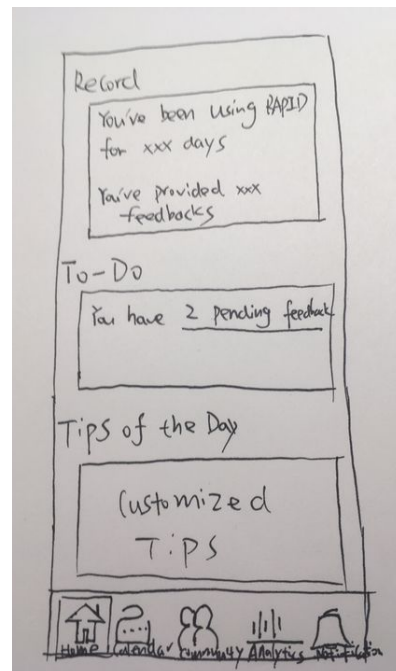 Record
You've been using RAPID
for xxx days
You've provided xxx
feedbacks
To-Do
You have 2 pending feedback
Tips of the Day
Customized
Tips
Home Calendar Community Analytics Notification